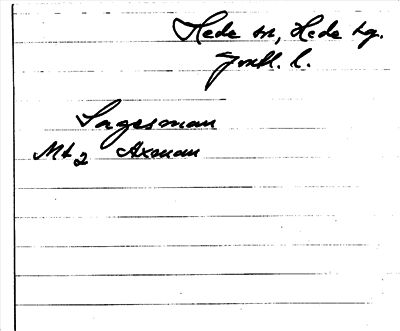 Hede sn, Hede hg.
Gotl. l.
Sagesman
Mt 2 Axman